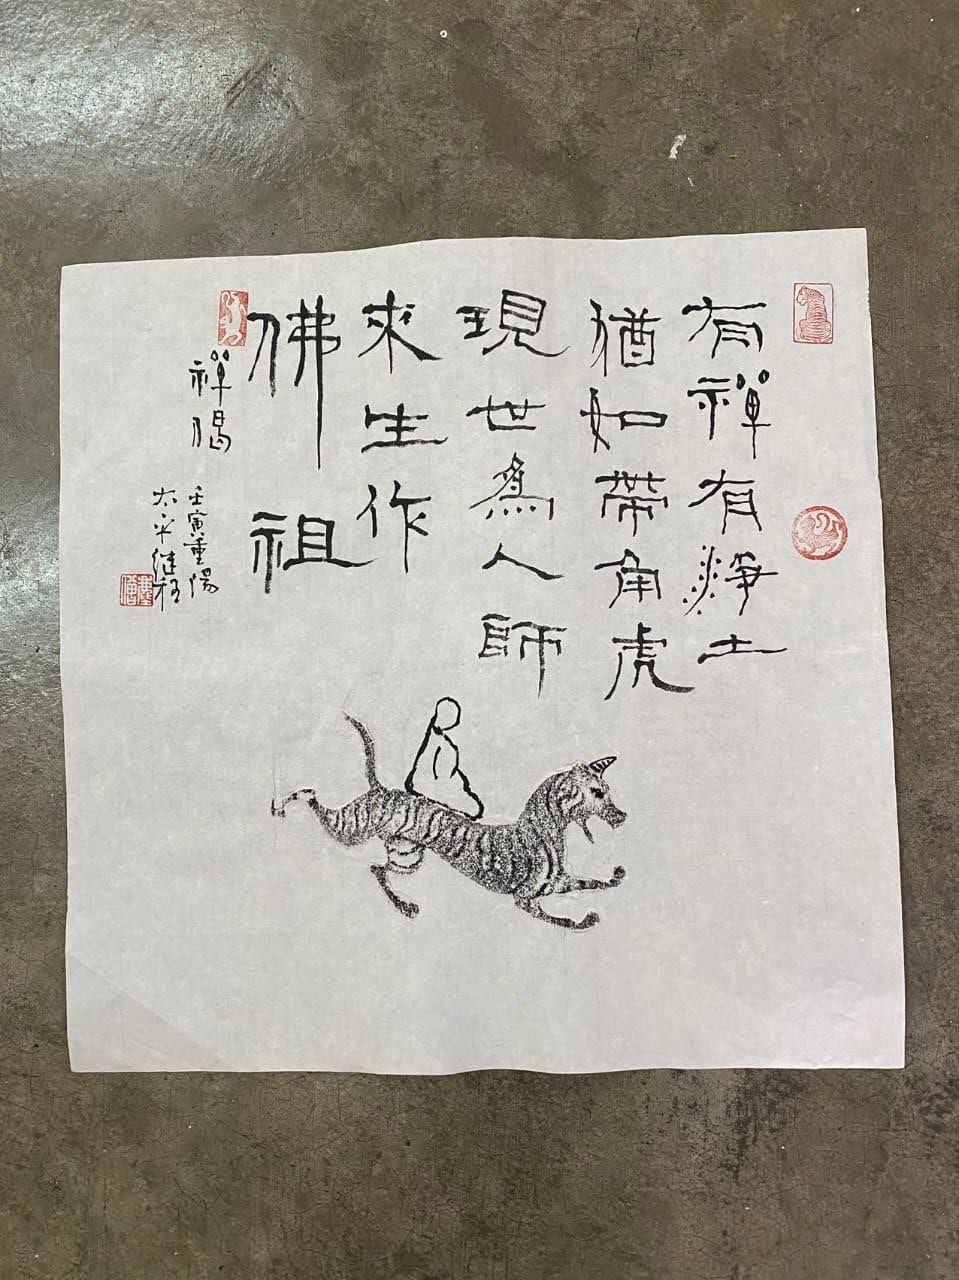 有禪有淨土
猶如帶角虎
現世為人師
來生作
佛祖
禪偈
壬寅重陽
太平继程